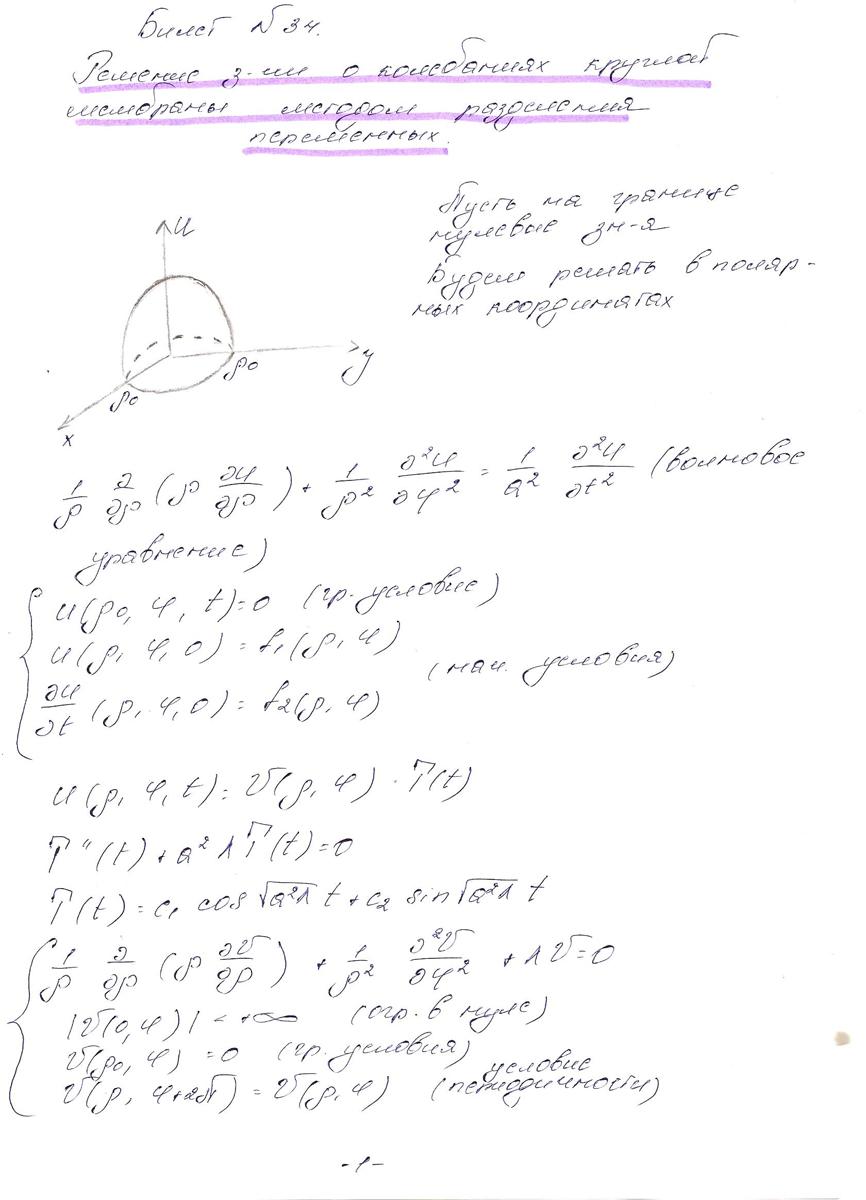 Билет №34.
Решение з-чи о колебаниях круглой
мембраны методом разделения
переменных.
Пусть на границе
нулевые зн-я
Будем решать в поляр-
ных координатах
u
y
ρ₀
ρ₀
x
1/ρ ∂/∂ρ (ρ ∂u/∂ρ) + 1/ρ² ∂²u/∂φ² = 1/a² ∂²u/∂t² (волновое
уравнение)
u(ρ₀, φ, t)=0 (гр. условие)
u(ρ, φ, 0) = f₁(ρ, φ)
(нач. условия)
∂u/∂t (ρ, φ, 0) = f₂(ρ, φ)
u(ρ, φ, t) = V(ρ, φ) · T(t)
T''(t) + a²λT(t)=0
T(t) = c₁ cos √a²λ t + c₂ sin √a²λ t
1/ρ ∂/∂ρ (ρ ∂V/∂ρ) + 1/ρ² ∂²V/∂φ² + λV=0
|V(0, φ)| < +∞ (огр. в нуле)
V(ρ₀, φ) = 0 (гр. условия)
V(ρ, φ+2π) = V(ρ, φ) (условие периодичности)
-1-